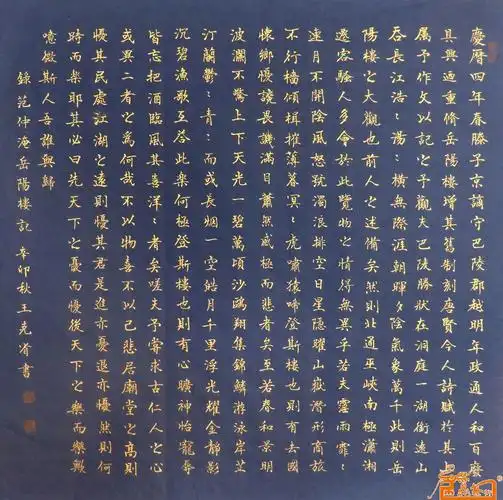 慶曆四年春滕子京謫守巴陵郡越明年政通人和百廢
具興迺重修岳陽樓增其舊制刻唐賢今人詩賦於其
屬予作文以記之予觀夫巴陵勝狀在洞庭一湖銜遠山
吞長江浩〻湯〻橫無際涯朝暉夕陰氣象萬千此則岳
陽樓之大觀也前人之述備矣然則北通巫峽南極瀟湘
遷客騷人多會於此覽物之情得無異乎若夫霪雨霏〻
連月不開陰風怒號濁浪排空日星隱耀山嶽潛形商旅
不行檣傾楫摧薄暮冥〻虎嘯猿啼登斯樓也則有去國
懷鄉懮讒畏譏滿目蕭然感極而悲者矣至若春和景明
波瀾不驚上下天光一碧萬頃沙鷗翔集錦鱗游泳岸芷
汀蘭鬱〻青〻而或長煙一空皓月千里浮光耀金靜影
沉碧漁歌互答此樂何極登斯樓也則有心曠神怡寵辱
皆忘把酒臨風其喜洋〻者矣嗟夫予嘗求古仁人之心
或異二者之為何哉不以物喜不以己悲居廟堂之高則
懮其民處江湖之遠則懮其君是進亦憂退亦懮然則何
時而樂耶其必曰先天下之憂而懮後天下之樂而樂歟
噫微斯人吾誰與歸
錄范仲淹岳陽樓記 辛卯秋王克省書